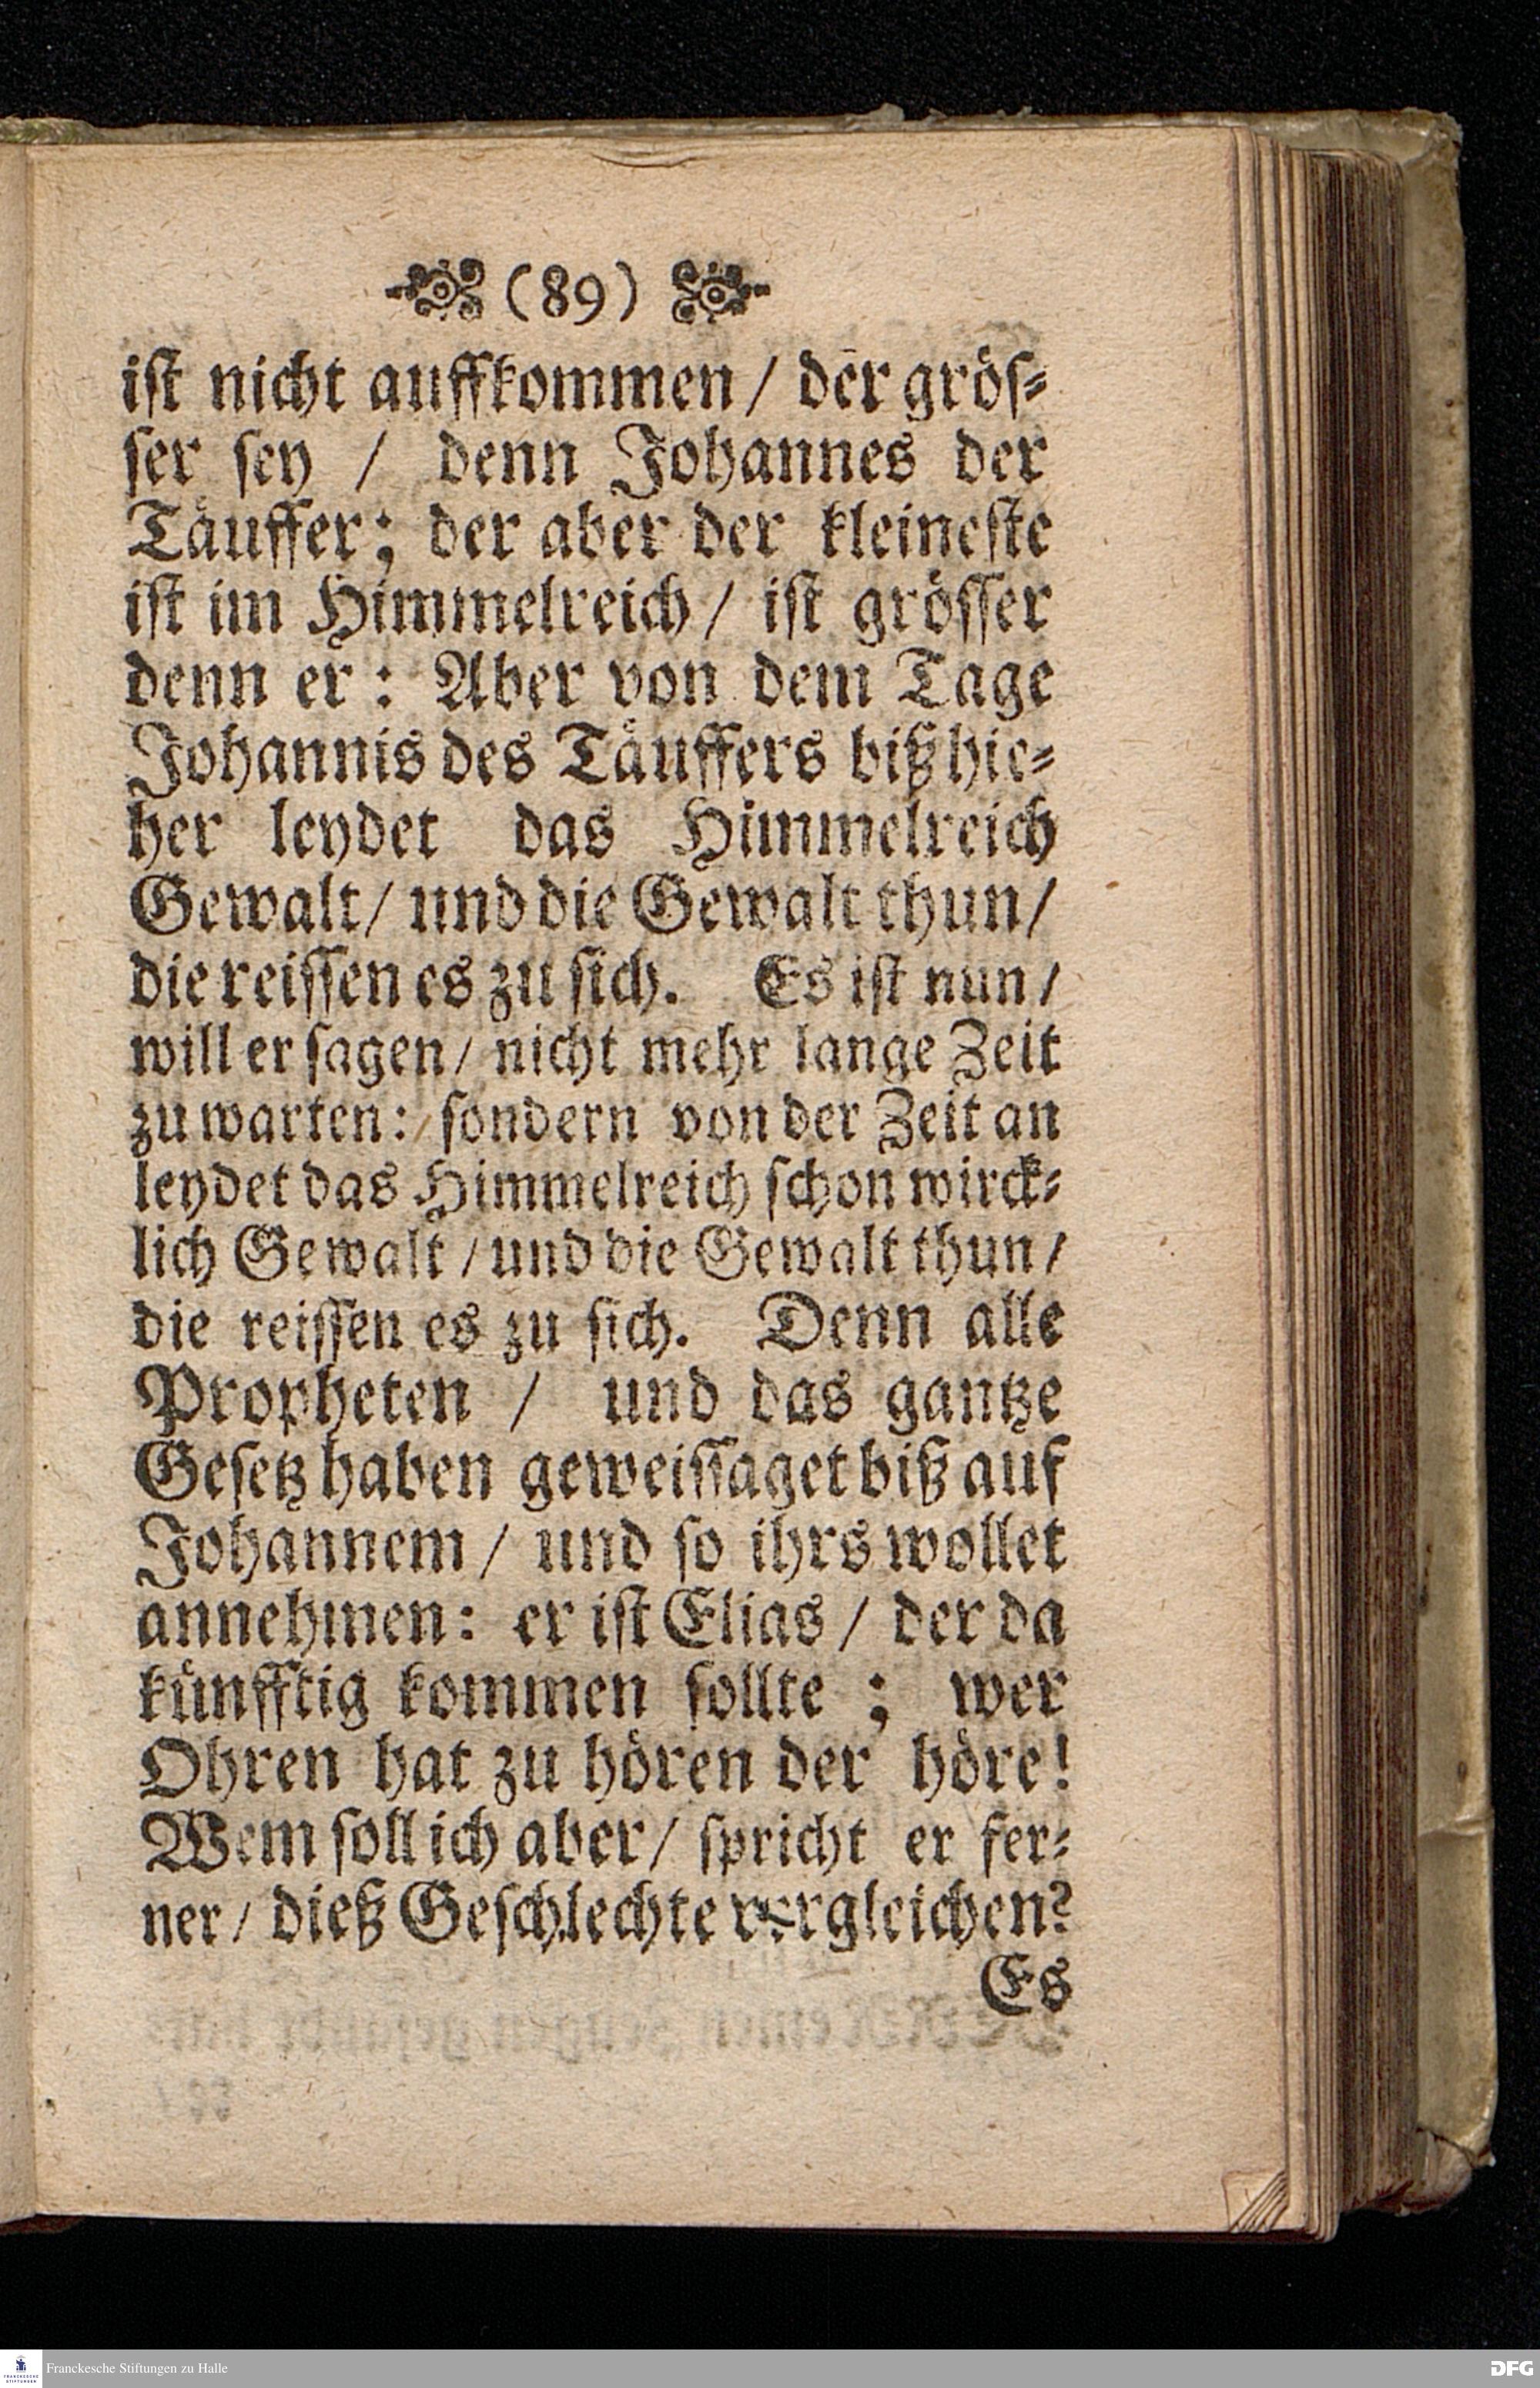 (89)
ist nicht auffkommen / der grös-
ser sey / denn Johannes der
Täuffer; der aber der kleineste
ist im Himmelreich / ist grösser
denn er: Aber von dem Tage
Johannis des Täuffers biß hie-
her leydet das Himmelreich
Gewalt / und die Gewalt thun /
die reissen es zu sich. Es ist nun /
will er sagen / nicht mehr lange Zeit
zu warten: / sondern von der Zeit an
leydet das Himmelreich schon wirck-
lich Gewalt / und die Gewalt thun /
die reissen es zu sich. Denn alle
Propheten / und das gantze
Gesetz haben geweissaget biß auf
Johannem / und so ihrs wollet
annehmen: er ist Elias / der da
künfftig kommen sollte ; wer
Ohren hat zu hören der höre!
Wem soll ich aber / spricht er fer-
ner / dieß Geschlechte vergleichen?
Es
FRANCKESCHE STIFTUNGEN
Franckesche Stiftungen zu Halle
DFG